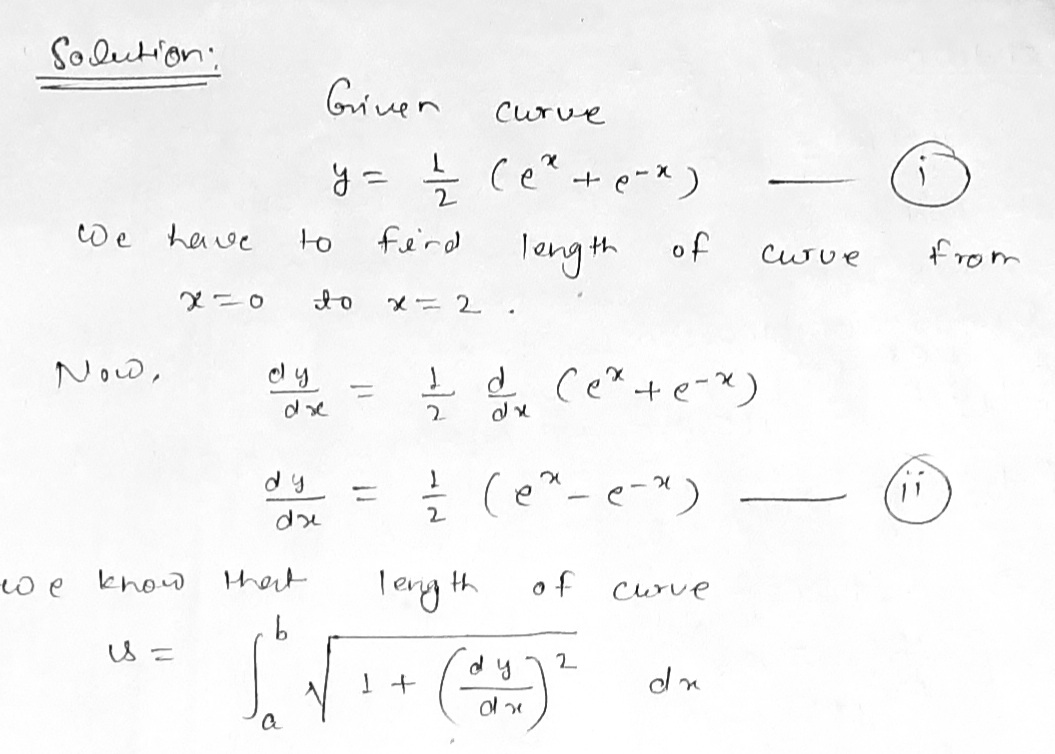 Solution:
Given curve
y = 1/2 (e^x + e^-x) — (i)
We have to find length of curve from
x=0 to x=2.
Now, dy/dx = 1/2 d/dx (e^x + e^-x)
dy/dx = 1/2 (e^x - e^-x) — (ii)
we know that length of curve
is = ∫_a^b √(1 + (dy/dx)^2) dx